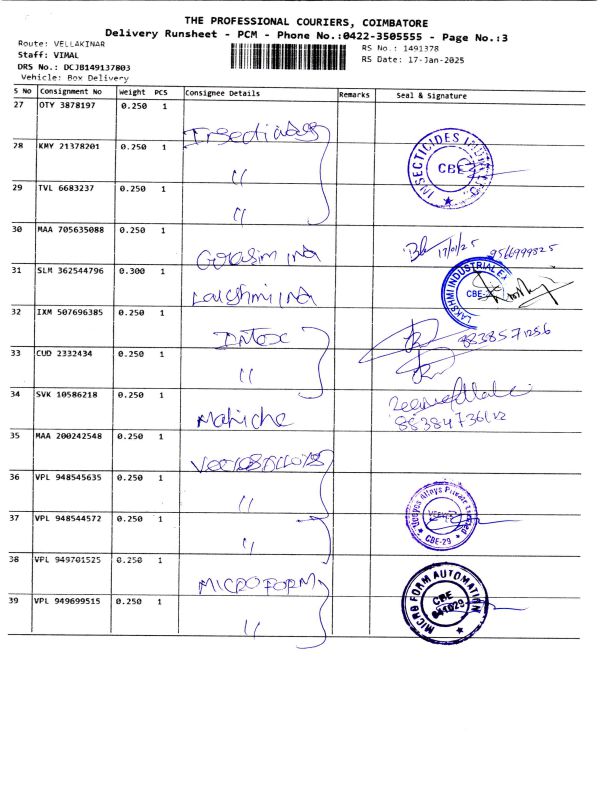 THE PROFESSIONAL COURIERS, COIMBATORE
Delivery Runsheet - PCM - Phone No.:0422-3505555 - Page No.:3
Route: VELLAKINAR
RS No.: 1491378
Staff: VIMAL
RS Date: 17-Jan-2025
DRS No.: DCJB149137803
Vehicle: Box Delivery
S No Consignment No Weight PCS Consignee Details Remarks Seal & Signature
27 OTY 3878197 0.250 1
28 KMY 21378201 0.250 1 "
INSECTICIDES CBE
29 TVL 6683237 0.250 1 "
30 MAA 705635088 0.250 1 INA
17/01/25
31 SLM 362544796 0.300 1 Lakshmi INA
LAKSHMI INDUSTRIAL CBE
32 IXM 507696385 0.250 1 INTOX
8838571256
33 CUD 2332434 0.250 1 "
34 SVK 10586218 0.250 1
35 MAA 200242548 0.250 1
36 VPL 948545635 0.250 1 "
Alloys Private Limited CBE-29
37 VPL 948544572 0.250 1 "
38 VPL 949701525 0.250 1 MICROFORM
MICRO FORM AUTOMATION CBE 641029
39 VPL 949699515 0.250 1 "